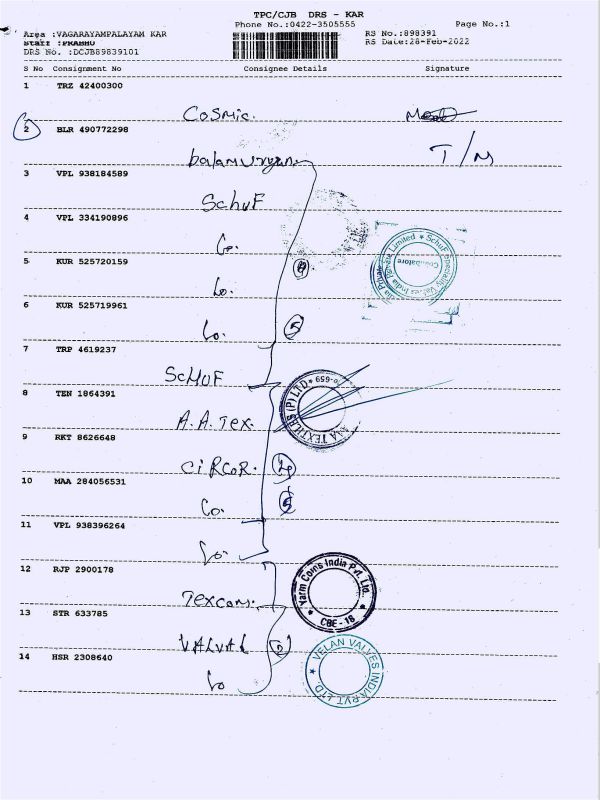 TPC/CJB DRS - KAR
Phone No.:0422-3505555
Page No.:1
Area :VAGARAYAMPALAYAM KAR
RS No.:898391
Staff :PRABHU
RS Date:28-Feb-2022
DRS No. :DCJB89839101
S No Consignment No Consignee Details Signature
1 TRZ 42400300
Cosmic.
2 BLR 490772298
balamurugan.
T/M
3 VPL 938184589
Schuf
4 VPL 334190896
Co.
5 KUR 525720159
Co.
6 KUR 525719961
Co. 5
7 TRP 4619237
SCHUF
8 TEN 1864391
A.A. Tex.
9 RKT 8626648
CIRCOR.
10 MAA 284056531
Co. 5
11 VPL 938396264
Co.
12 RJP 2900178
Texcoms.
Yarm Coms India Pvt. Ltd.
CBE - 18
13 STR 633785
VALVAL
14 HSR 2308640
Co
VELAN VALVES INDIA PVT. LTD.